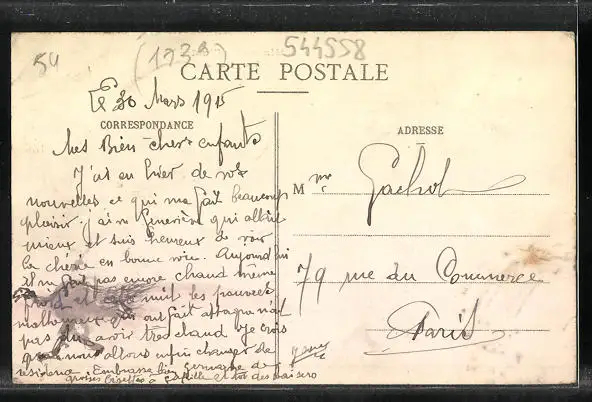 54
(1939)
544558
CARTE POSTALE
Le 30 Mars 1915
CORRESPONDANCE
ADRESSE
Mes Bien chers enfants
J'ai eu hier de vos
nouvelles ce qui me fait beaucoup
plaisir. j'ai vu Geneviève qui allait
mieux et suis heureux de voir
la chérie en bonne voie. Aujourd'hui
il ne fait pas encore chaud même
froid et nuit les pauvres
qui ont fait
pas du avoir très chaud je crois
que nous allons enfin changer de
résidence. Embrasse bien Germaine de
grosses bisettes à et toi des baisers
M me Gachot
79 rue du Commerce
Paris